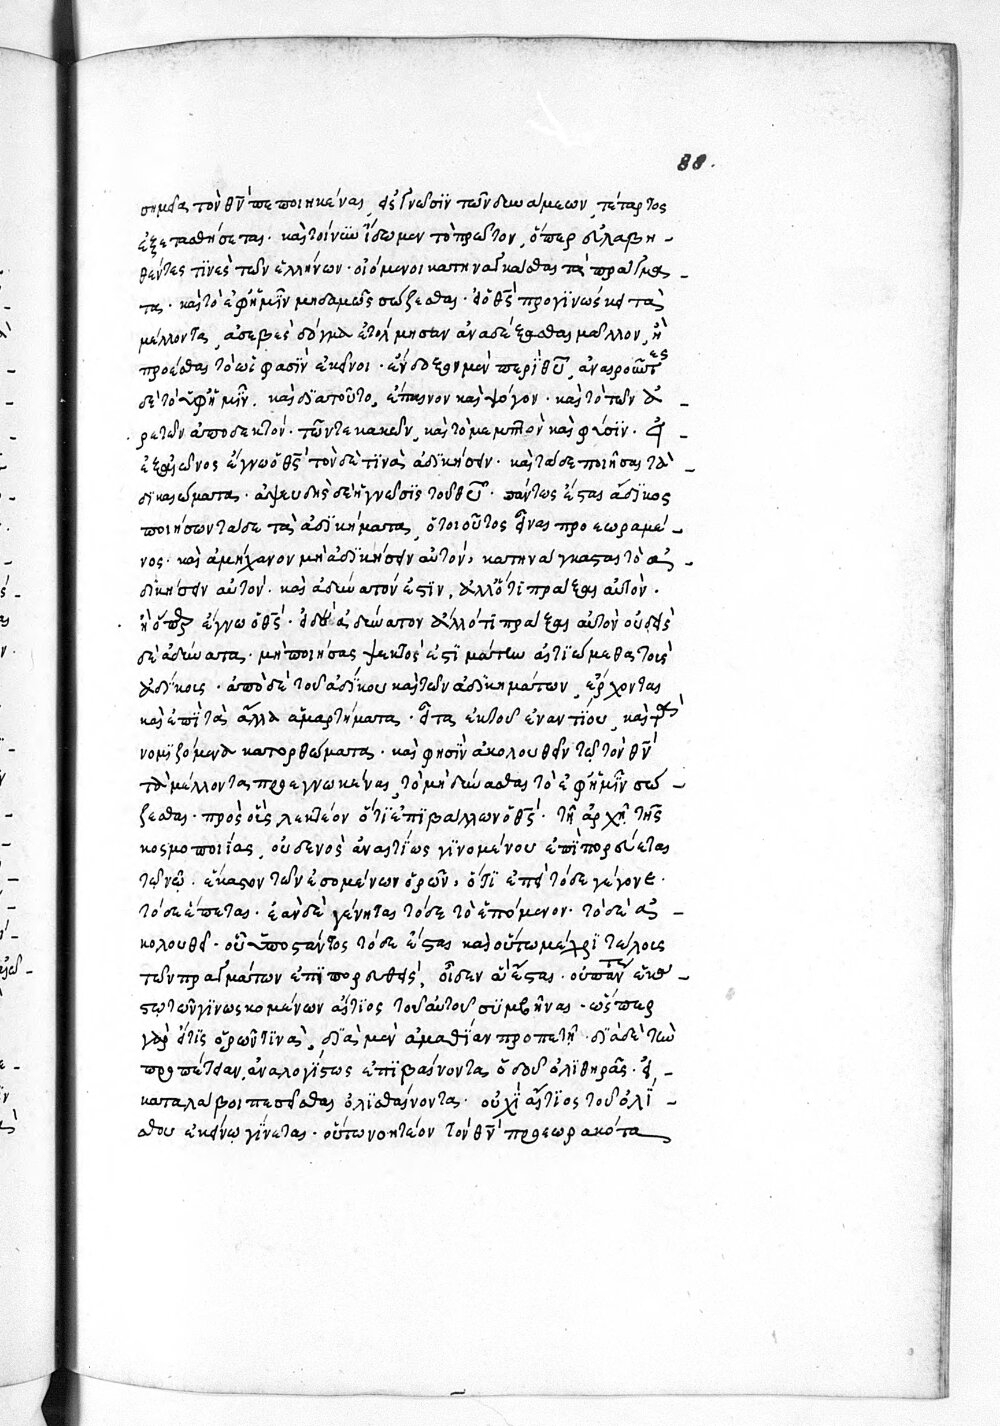 88.
σημεῖα τὸν θν̅ πεποιηκέναι, εἰς γνῶσιν τῶν δυνάμεων, τέταρτος
ἐξετασθήσεται· καὶ τοίνυν ἴδωμεν τὸ πρῶτον, ὅπερ εὐλαβη-
θέντες τινὲς τῶν ἑλλήνων· οἰόμενοι κατηναγκάσθαι τὰ πράγμα-
τα· καὶ τὸ ἐφ' ἡμῖν μηδαμῶς σώζεσθαι· εἰ ὁ θς̅ προγινώσκει τὰ
μέλλοντα, ἀσεβὲς δόγμα ἐτόλμησαν ἀναδέξασθαι μᾶλλον, ἢ
προέσθαι τὸ ὥς φασιν ἐκεῖνοι· ἔνδοξον μὲν περὶ θυ̅, ἀναιροῦν
δὲ τὸ ἐφ' ἡμῖν. καὶ διὰ τοῦτο, ἔπαινον καὶ ψόγον· καὶ τὸ τῶν ἀ-
ρετῶν ἀποδεκτόν· τῶν τε κακιῶν, καὶ τὸ μεμπτὸν καὶ φασίν· εἰ
ἐξ αἰῶνος ἔγνω ὁ θς̅ τόνδε τινὰ ἀδικήσειν· καὶ τάδε ποιήσαι τὰ
δικαιώματα· ἀψευδὴς δὲ ἡ γνῶσις τοῦ θυ̅· πάντως ἔσται ἄδικος
ποιήσων τάδε τὰ ἀδικήματα, ὁ τοιοῦτος εἶναι προεωραμέ-
νος· καὶ ἀμήχανον μὴ ἀδικήσειν αὐτόν, κατηνάγκασται τὸ ἀ-
δικήσειν αὐτόν· καὶ ἀδύνατόν ἐστιν, ἄλλό τι πράξαι αὐτὸν·
ἢ ὅπερ ἔγνω ὁ θς̅· εἰ δὲ ἀδύνατον ἄλλό τι πράξαι αὐτὸν οὐδεὶς
δὲ ἀδύνατα· μὴ ποιήσας ψεκτός ἐστι μάτην αἰτιώμεθα τοὺς
ἀδίκους· ἀπὸ δὲ τοῦ ἀδίκου καὶ τῶν ἀδικημάτων, ἔρχονται
καὶ ἐπὶ τὰ ἄλλα ἁμαρτήματα· εἶτα ἐκ τοῦ ἐναντίου, καὶ τὰ
νομιζόμενα κατορθώματα· καὶ φησὶν ἀκολουθεῖν τῷ τὸν θν̅
τὰ μέλλοντα προεγνωκέναι, τὸ μὴ δύνασθαι τὸ ἐφ' ἡμῖν σώ-
ζεσθαι· πρὸς οὓς λεκτέον ὅτι ἐπιβάλλων ὁ θς̅· τῇ ἀρχῇ τῆς
κοσμοποιΐας, οὐδενὸς ἀναιτίως γινομένου ἐπιπορεύεται
τῷ νῷ· ἕκαστον τῶν ἐσομένων ὁρῶν, ὅτι ἐπεὶ τόδε γέγονε·
τόδε ἕπεται· ἐὰν δὲ γένηται τόδε τὸ ἑπόμενον· τόδε ἀ-
κολουθεῖ· οὗ ὑποστάντος τόδε ἔσται καὶ οὕτω μέχρι τέλους
τῶν πραγμάτων ἐπιπορευθεὶς, οἶδεν ἃ ἔσται· οὐ πάντως ἑκά-
στῳ τῶν γινωσκομένων αἴτιος τοῦ αὐτοῦ συμβῆναι· ὥσπερ
γὰρ εἴ τις ὁρῶν τινὰ, διὰ μὲν ἀμαθίαν προπετῆ· διὰ δὲ τὴν
προπέτειαν, ἀναλογίστως ἐπιβαίνοντα ὁδοῦ ὀλισθηρᾶς· εἰ,
καταλάβοι πεσεῖσθαι ὀλισθαίνοντα· οὐχὶ αἴτιος τοῦ ὀλί-
σθου ἐκείνῳ γίνεται· οὕτω νοητέον τὸν θν̅ προεωρακότα